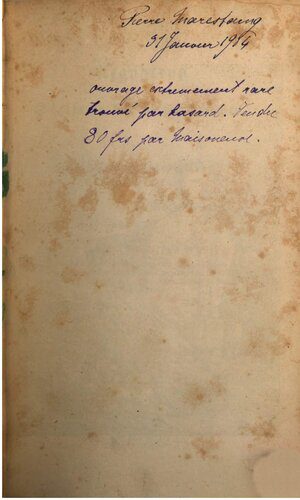 Pierre Marestaing
31 Janvier 1914
ouvrage extremement rare
trouvé par hasard. Vendu
80 frs par Maisonneuve.